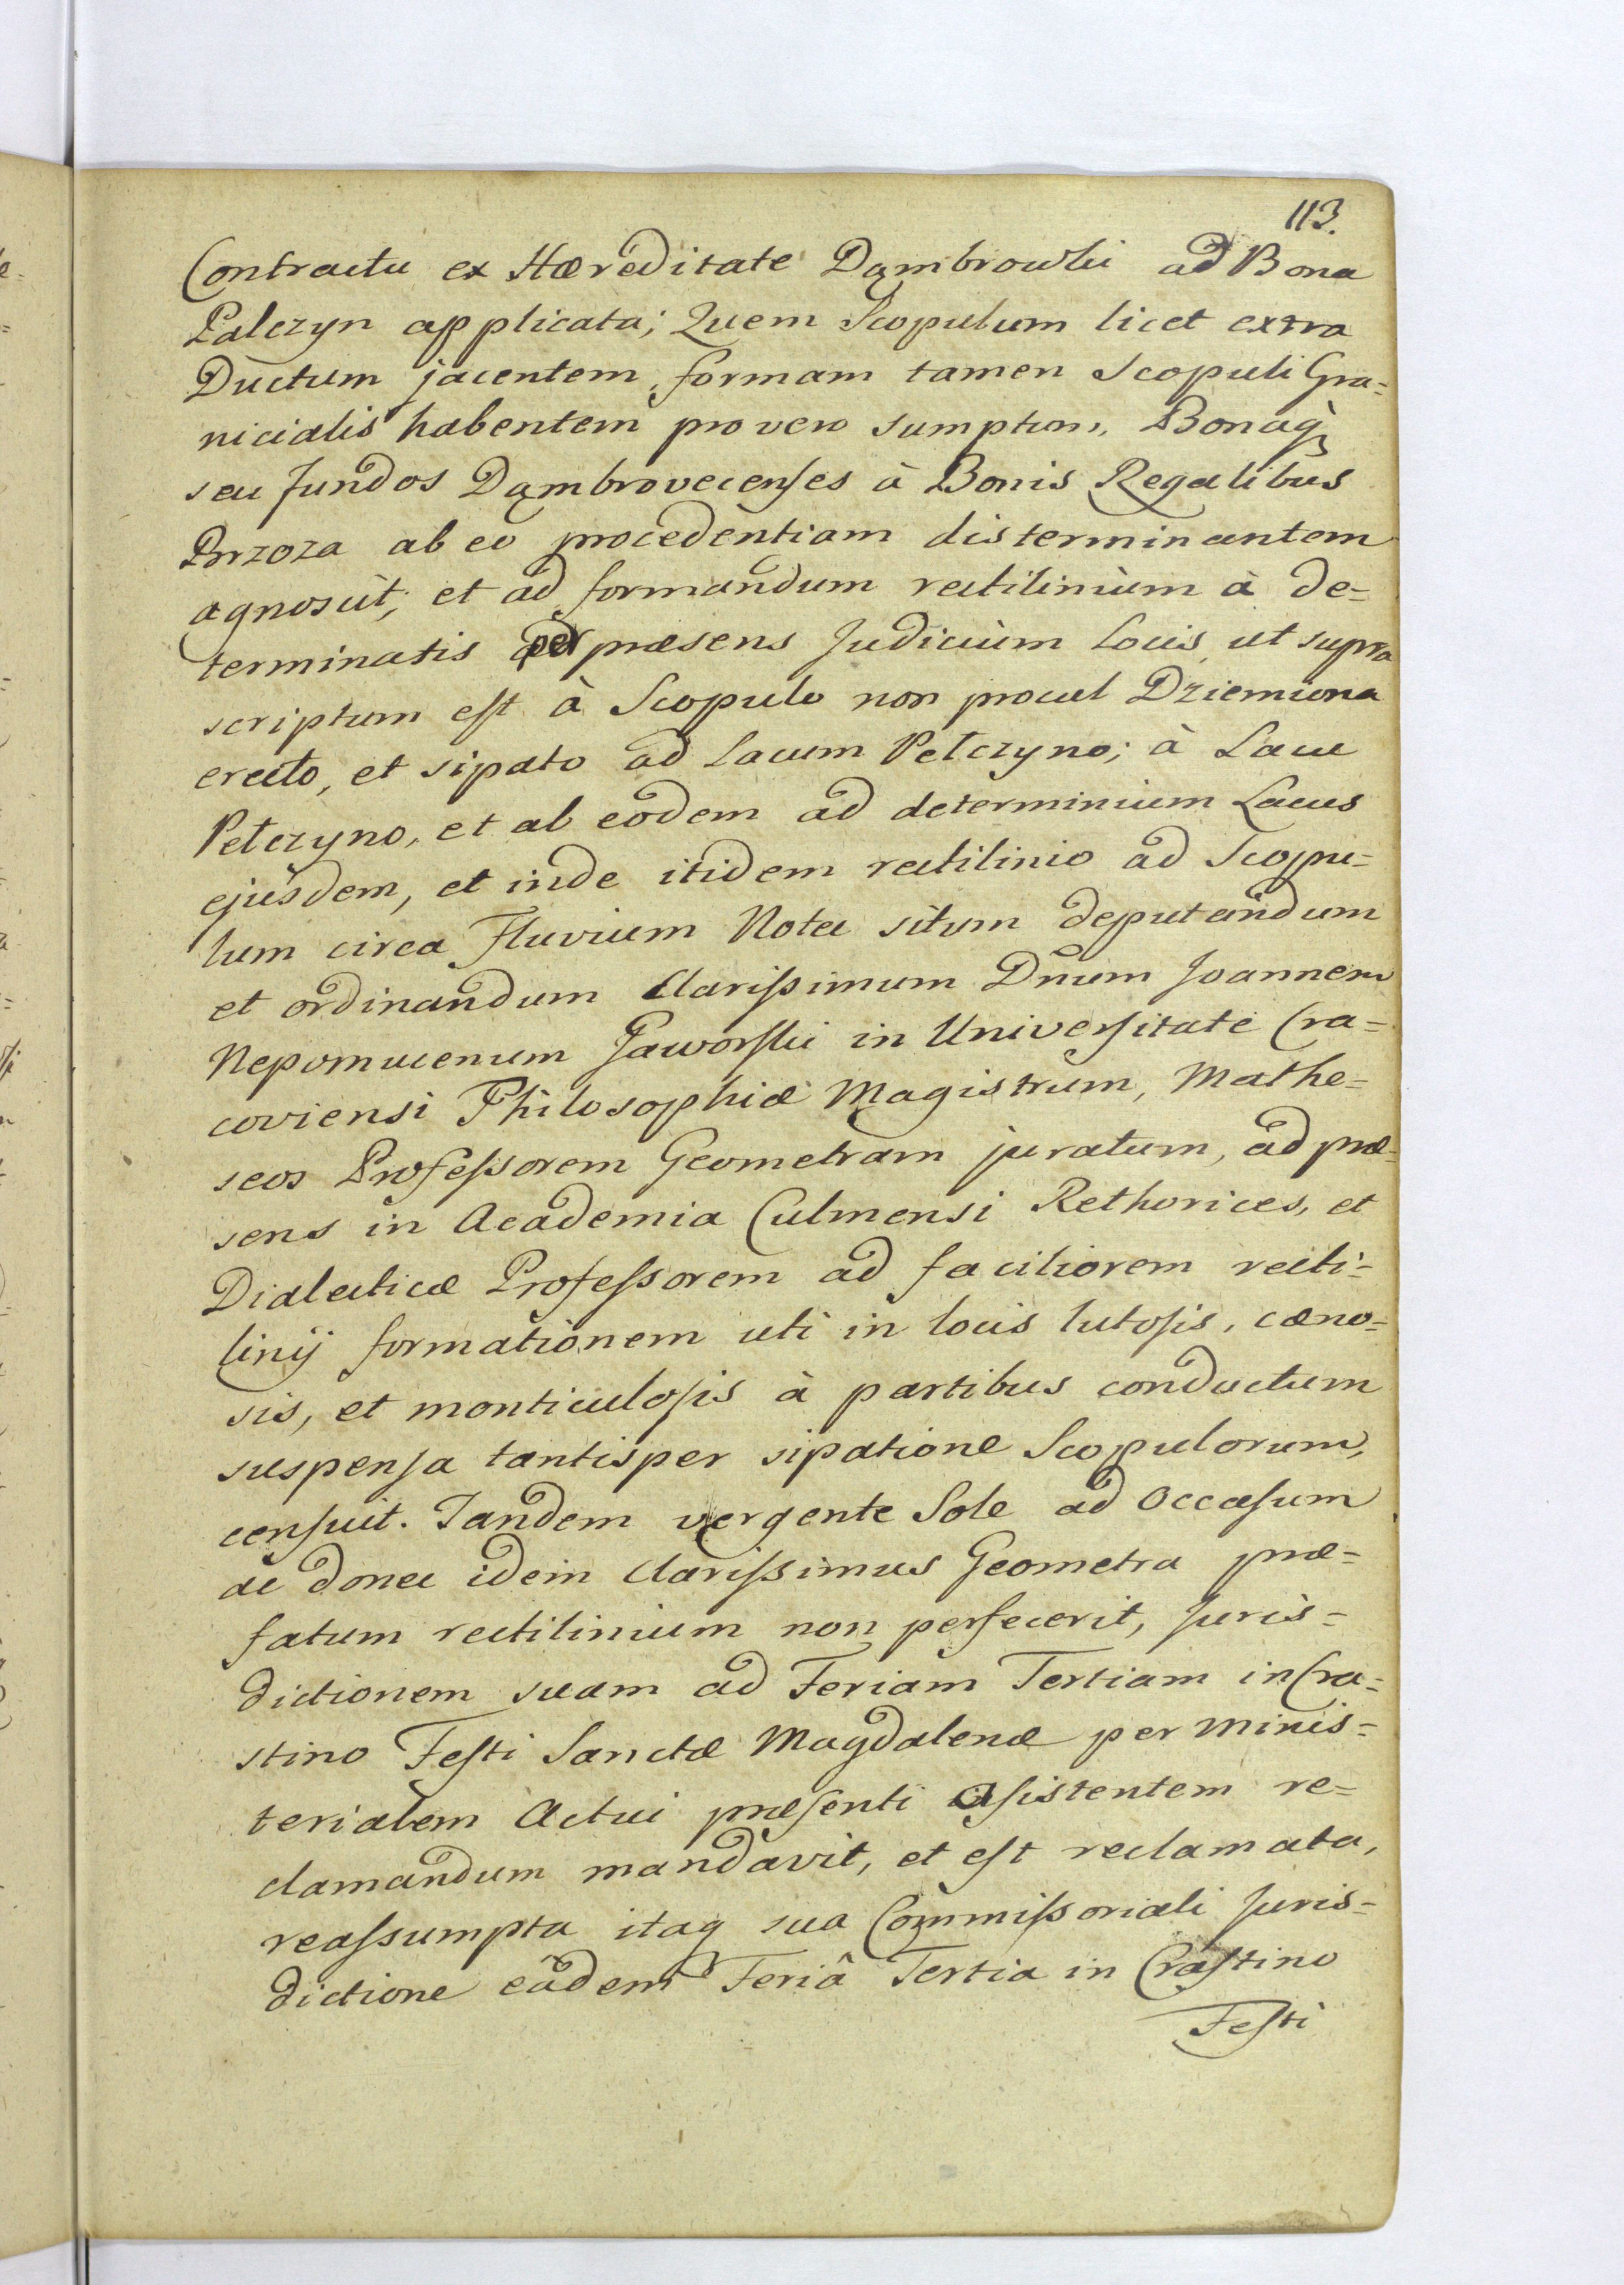 113.
Contractu ex Hæreditate Dąmbrowki ad Bona
Palczyn applicata; Quem Scopulum licet extra
Ductum jacentem, formam tamen Scopuli Gra=
nicialis habentem pro vero sumptum, Bonaq̀
seu fundos Dąmbrovecenses à Bonis Regalibus
Brzoza ab eo procedentiam disterminantem
agnoscit; et ad formandum rectilinium à de=
terminatis per præsens Judicium Locis, ut supra
scriptum est à Scopulo non procul Dziemiona
erecto, et sipato ad Lacum Petczyno; à Lacu
Petczyno, et ab eodem ad determinium Lacus
ejusdem, et inde itidem rectilinio ad Scopu=
lum circa Fluvium Noteć situm deputandum
et ordinandum Clarissimum Dnum Joannem
Nepomucenum Jaworski in Universitate Cra=
coviensi Philosophiæ Magistrum, Mathe=
seos Professorem Geometram juratum, ad præ=
sens in Academia Culmensi Rethorices, et
Dialecticæ Professorem ad faciliorem recti=
linij formationem uti in locis lutosis, cæno=
sis, et monticulosis à partibus conductum
suspensa tantisper sipatione Scopulorum,
censuit. Tandem vergente Sole ad Occasum
ac donec idem Clarissimus Geometra præ=
fatum rectilinium non perfecerit, Juris=
dictionem suam ad Feriam Tertiam in Cra=
stino Festi Sanctæ Magdalenæ per Minis=
terialem Actui præsenti Asistentem re=
clamandum mandavit, et est reclamata,
reassumpta itaq sua Commissoriali Juris=
dictione eâdem Feriâ Tertia in Crastino
Festi